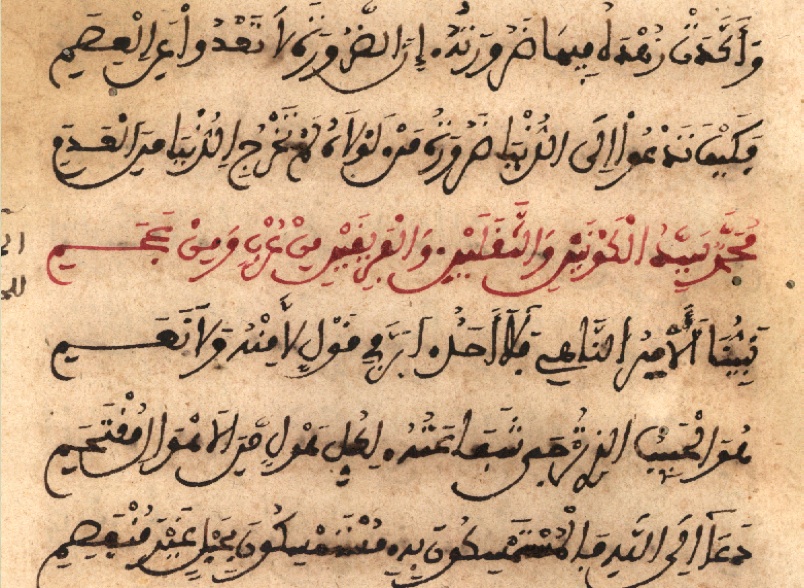 وَأَكَّدَتْ زُهْدَهُ فِيهَا ضَرُورَتُهُ إِنَّ الضَّرُورَةَ لَا تَعْدُوا عَلَى الْعِصَمِ
وَكَيْفَ تَدْعُوا إِلَى الدُّنْيَا ضَرُورَةُ مَنْ لَوْلَاهُ لَمْ تَخْرُجِ الدُّنْيَا مِنَ الْعَدَمِ
مُحَمَّدٌ سَيِّدُ الْكَوْنَيْنِ وَالثَّقَلَيْنِ وَالْفَرِيقَيْنِ مِنْ عُرْبٍ وَمِنْ عَجَمِ
نَبِيُّنَا الْآمِرُ النَّاهِي فَلَا أَحَدٌ أَبَرَّ فِي قَوْلِ لَا مِنْهُ وَلَا نَعَمِ
هُوَ الْحَبِيبُ الَّذِي تُرْجَى شَفَاعَتُهُ لِكُلِّ هَوْلٍ مِنَ الْأَهْوَالِ مُقْتَحَمِ
دَعَا إِلَى اللَّهِ فَالْمُسْتَمْسِكُونَ بِهِ مُسْتَمْسِكُونَ بِحَبْلٍ غَيْرِ مُنْفَصِمِ